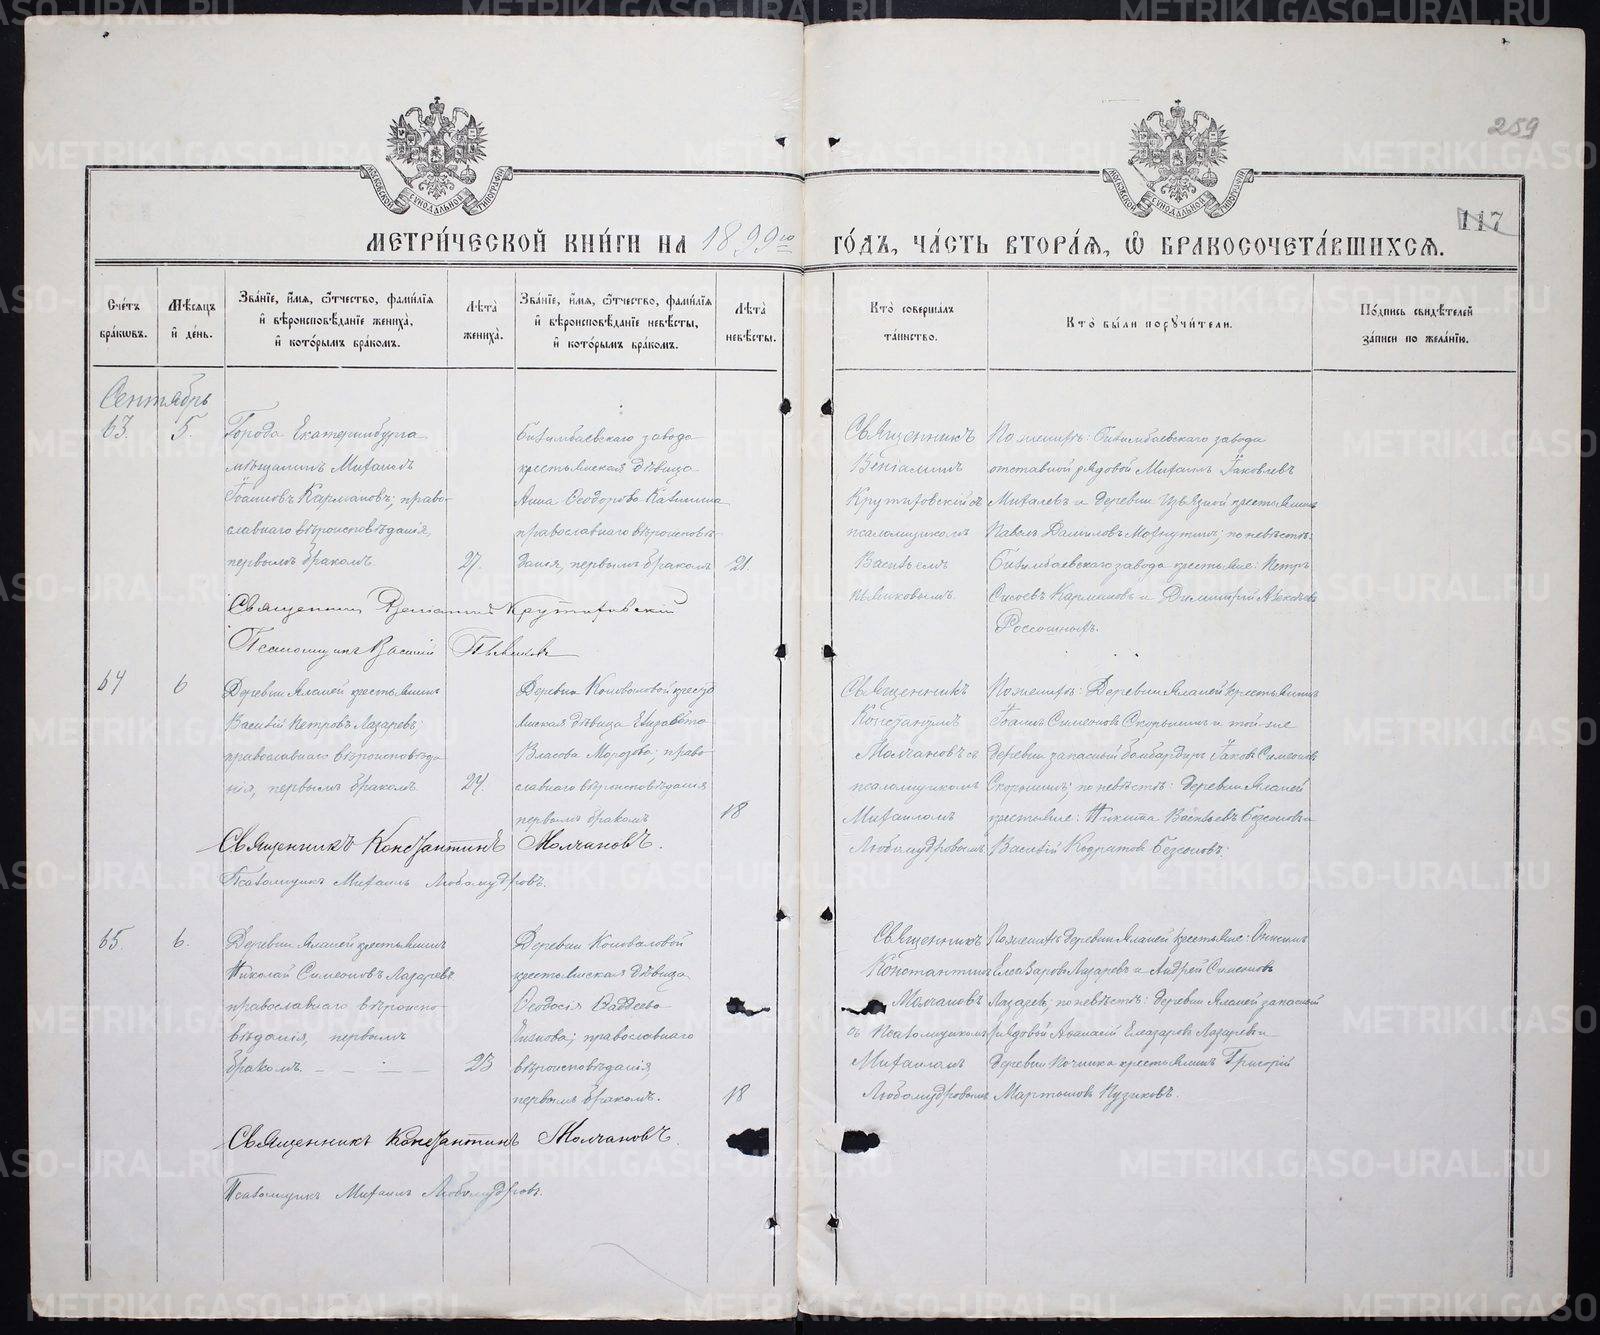 259
117
МОСКОВСКОЙ СѴНОДАЛЬНОЙ ТИПОГРАФІИ
МОСКОВСКОЙ СѴНОДАЛЬНОЙ ТИПОГРАФІИ
МЕТРИ́ЧЕСКОЙ КНИ́ГИ НА 1899го ГО́ДЪ, ЧА́СТЬ ВТОРА́Ѧ, Ѽ БРАКОСОЧЕТА́ВШИХСѦ.
Сче́тъ бра́кѡвъ.
Мѣ́сяцъ и҆ де́нь.
Зва́нїе, и҆́мѧ, ѻ҆́тчество, фами́лїѧ и҆ вѣроисповѣ́данїе жениха̀, и҆ кото́рымъ бра́комъ.
Лѣ́та жениха̀.
Зва́нїе, и҆́мѧ, ѻ҆́тчество, фами́лїѧ и҆ вѣроисповѣ́данїе невѣ́сты, и҆ кото́рымъ бра́комъ.
Лѣ́та невѣ́сты.
Кто̀ соверша́лъ та́инство.
Кто̀ бы́ли порꙋчи́тели.
По́дпись свидѣ́телей за́писи по жела́нїю.
Сентябрь
63. 5.
Города Екатеринбурга
мѣщанинъ Михаилъ
Іоанновъ Кармановъ; право-
славнаго вѣроисповѣданія,
первымъ бракомъ. 27.
Билимбаевскаго завода
крестьянская дѣвица
Анна Ѳеодорова Калинина
православнаго вѣроисповѣ-
данія, первымъ бракомъ 21.
Священникъ
Веніаминъ
Крутиховскій съ
псаломщикомъ
Васильемъ
Пьянковымъ.
По женихѣ: Билимбаевскаго завода
отставной рядовой Михаилъ Іаковлевъ
Михалевъ и деревни крестьянинъ
Павелъ Даниловъ; по невѣстѣ:
Билимбаевскаго завода крестьяне: Петръ
Сысоевъ Кармановъ и Димитрій Алексѣевъ
Россошныхъ.
Священникъ Веніаминъ Крутиховскій
Псаломщикъ Василій Пьянковъ
64 6
Деревни Яланей крестьянинъ
Василій Петровъ Лазаревъ;
православнаго вѣроисповѣда-
нія, первымъ бракомъ. 24.
Деревни Коноваловой кресть-
янская дѣвица Елизавета
Власова Морозова; право-
славнаго вѣроисповѣданія
первымъ бракомъ 18
Священникъ
Константинъ
Молчановъ съ
псаломщикомъ
Михаиломъ
Любомудровымъ
По женихѣ: Деревни Яланей крестьянинъ
Іоаннъ Симеоновъ Скорынинъ и той-же
деревни запасный бомбардиръ Іаковъ Симеоновъ
Скорынинъ; по невѣстѣ: деревни Яланей
крестьяне: Никита Васильевъ Безсоновъ и
Василій Кодратовъ Безсоновъ.
Священникъ Константинъ Молчановъ.
Псаломщикъ Михаилъ Любомудровъ.
65. 6.
Деревни Яланей крестьянинъ
Николай Симеоновъ Лазаревъ
православнаго вѣроиспо-
вѣданія, первымъ
бракомъ. 23
Деревни Коноваловой
крестьянская дѣвица
Ѳеодосія Ѳаддеева
православнаго
вѣроисповѣданія,
первымъ бракомъ. 18
Священникъ
Константинъ
Молчановъ
съ псаломщикомъ
Михаиломъ
Любомудровымъ
По женихѣ деревни Яланей крестьяне: Онисимъ
Елеазаровъ Лазаревъ и Андрей Симеоновъ
Лазаревъ; по невѣстѣ: деревни Яланей запасный
рядовой Аѳанасій Елеазаровъ Лазаревъ и
деревни Починка крестьянинъ Григорій
Мартыновъ Пузиковъ.
Священникъ Константинъ Молчановъ.
Псаломщикъ Михаилъ Любомудровъ.
METRIKI.GASO-URAL.RU